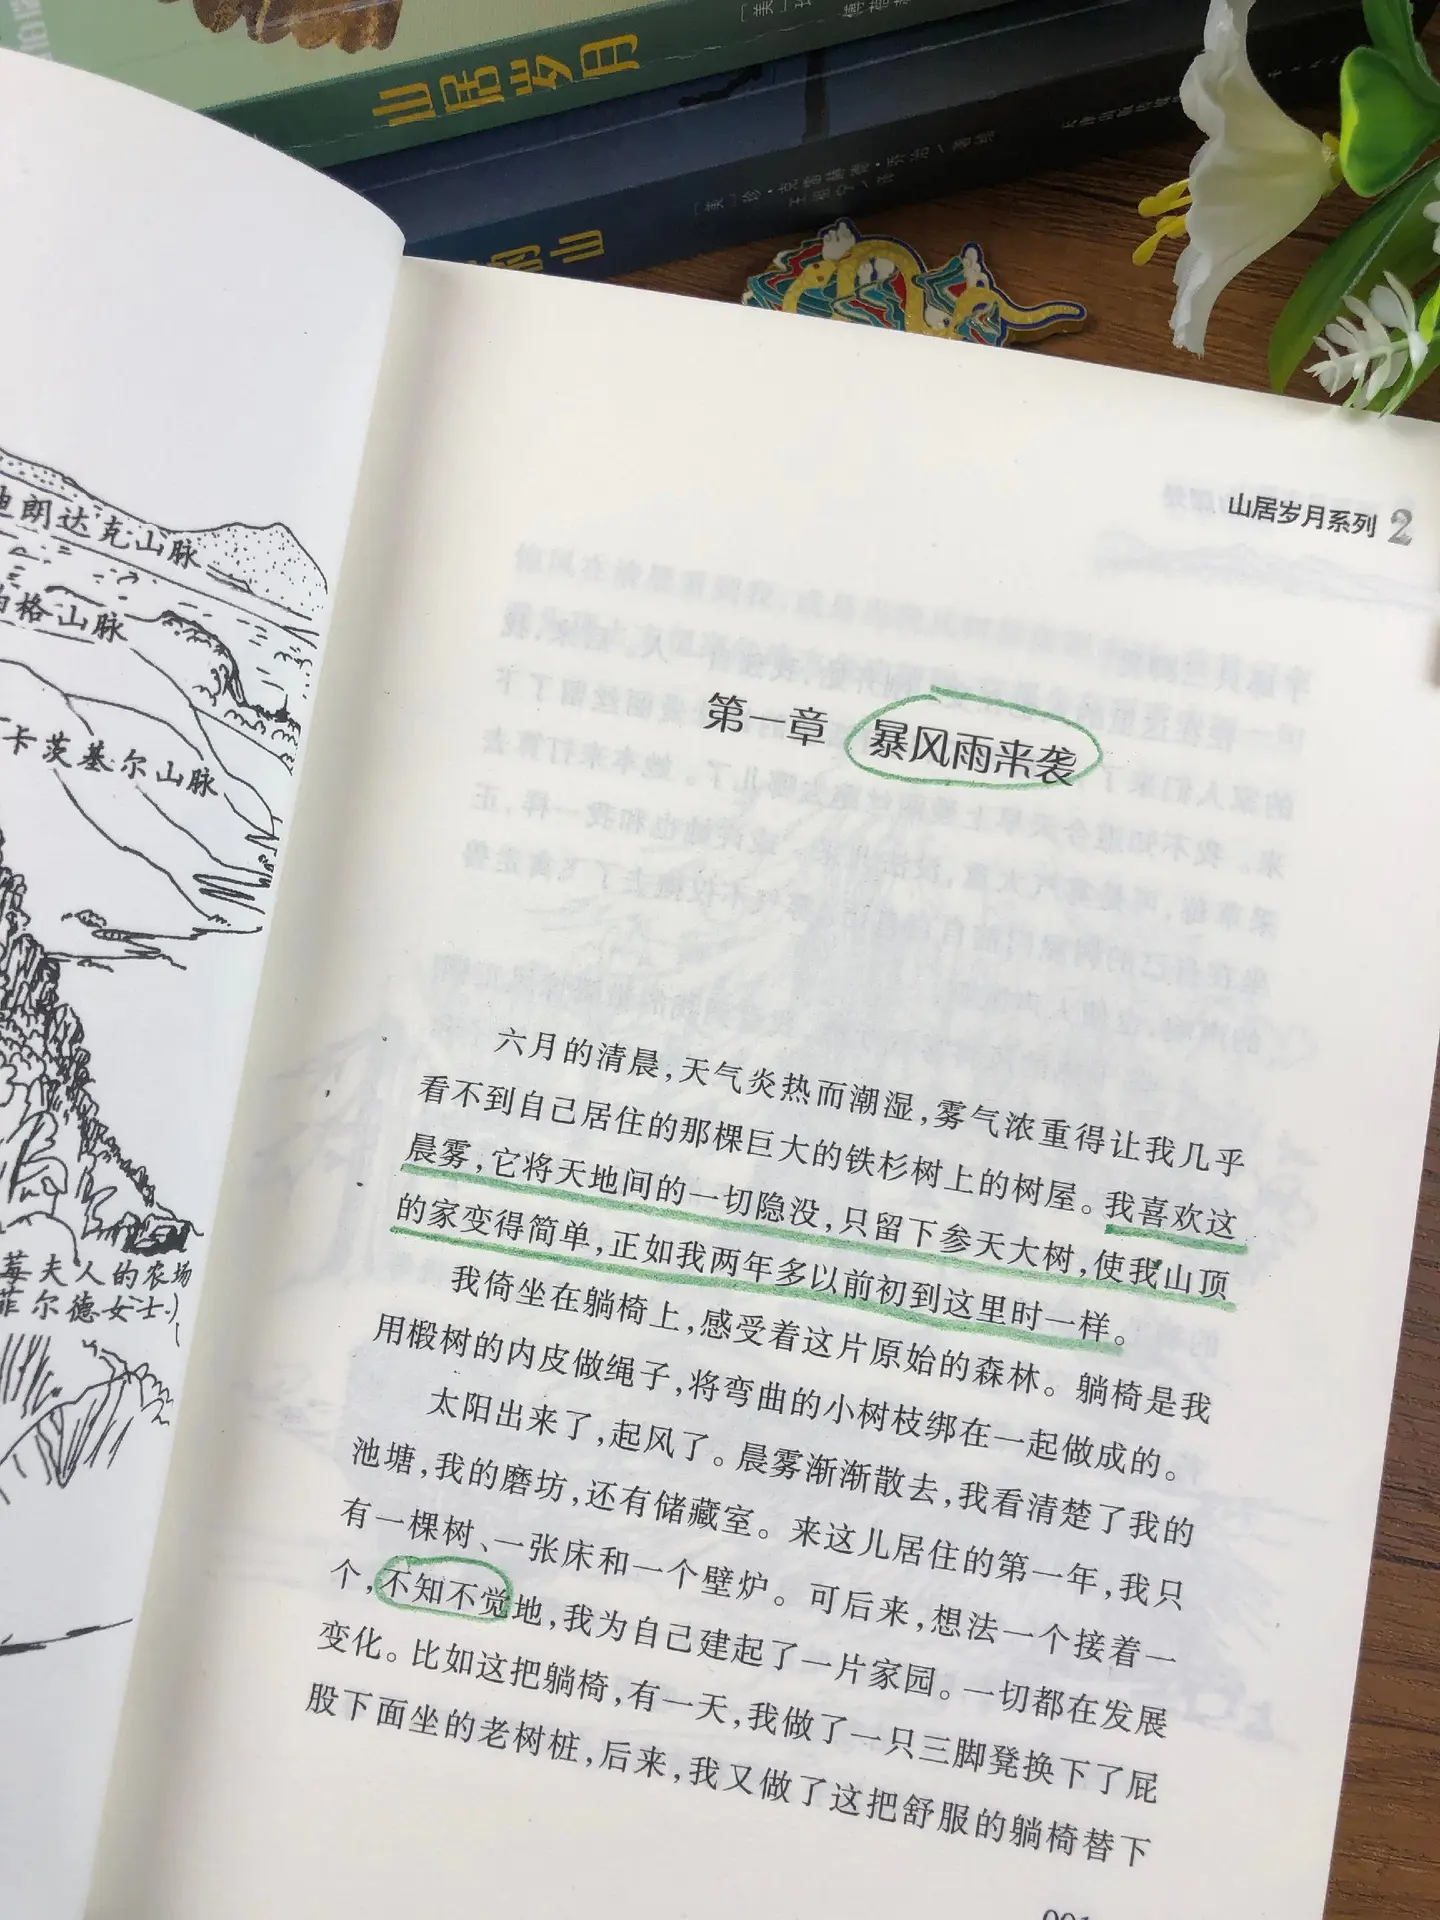 山居岁月
[美]珍·克雷赫德·乔治/著绘
的山
迪朗达克山脉
格山脉
卡茨基尔山脉
莓夫人的农场
菲尔德女士)
山居岁月系列 2
第一章 暴风雨来袭
六月的清晨,天气炎热而潮湿,雾气浓重得让我几乎
看不到自己居住的那棵巨大的铁杉树上的树屋。我喜欢这
晨雾,它将天地间的一切隐没,只留下参天大树,使我山顶
的家变得简单,正如我两年多以前初到这里时一样。
我倚坐在躺椅上,感受着这片原始的森林。躺椅是我
用椴树的内皮做绳子,将弯曲的小树枝绑在一起做成的。
太阳出来了,起风了。晨雾渐渐散去,我看清楚了我的
池塘,我的磨坊,还有储藏室。来这儿居住的第一年,我只
有一棵树、一张床和一个壁炉。可后来,想法一个接着一
个,不知不觉地,我为自己建起了一片家园。一切都在发展
变化。比如这把躺椅,有一天,我做了一只三脚凳换下了屁
股下面坐的老树桩,后来,我又做了这把舒服的躺椅替下
001